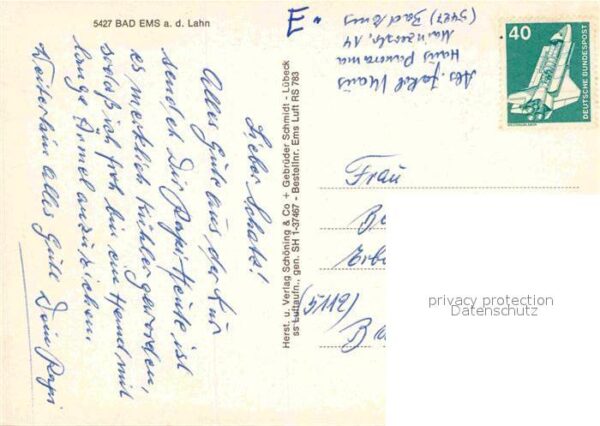 5427 BAD EMS a. d. Lahn
Lieber Schatz!
Alles Gute aus der Kur
sendet Dir Papi Heute ist
es merklich kühler geworden,
sodaß ich froh bin ein Hemd mit
lange Ärmel anzuziehen
Weiterhin alles Gute Dein Papi
Herst. u. Verlag Schöning & Co + Gebrüder Schmidt - Lübeck
ss Luftaufn., gen. SH 1-37467 - Bestellnr. Ems Luft RS 783
E
Abs. Jakob
Haus Panorama
Mainzerstr. 14
(5427) Bad Ems
40
DEUTSCHE BUNDESPOST
Frau
Be
Erb
Ba
privacy protection
Datenschutz